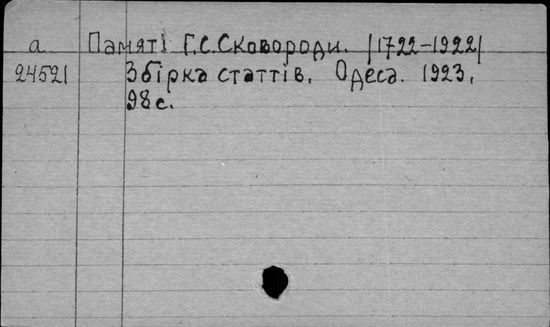 а Памяті Г.С.Сковороди. /1722-1922/
24521 Збірка статтів. Одеса. 1923.
98 с.